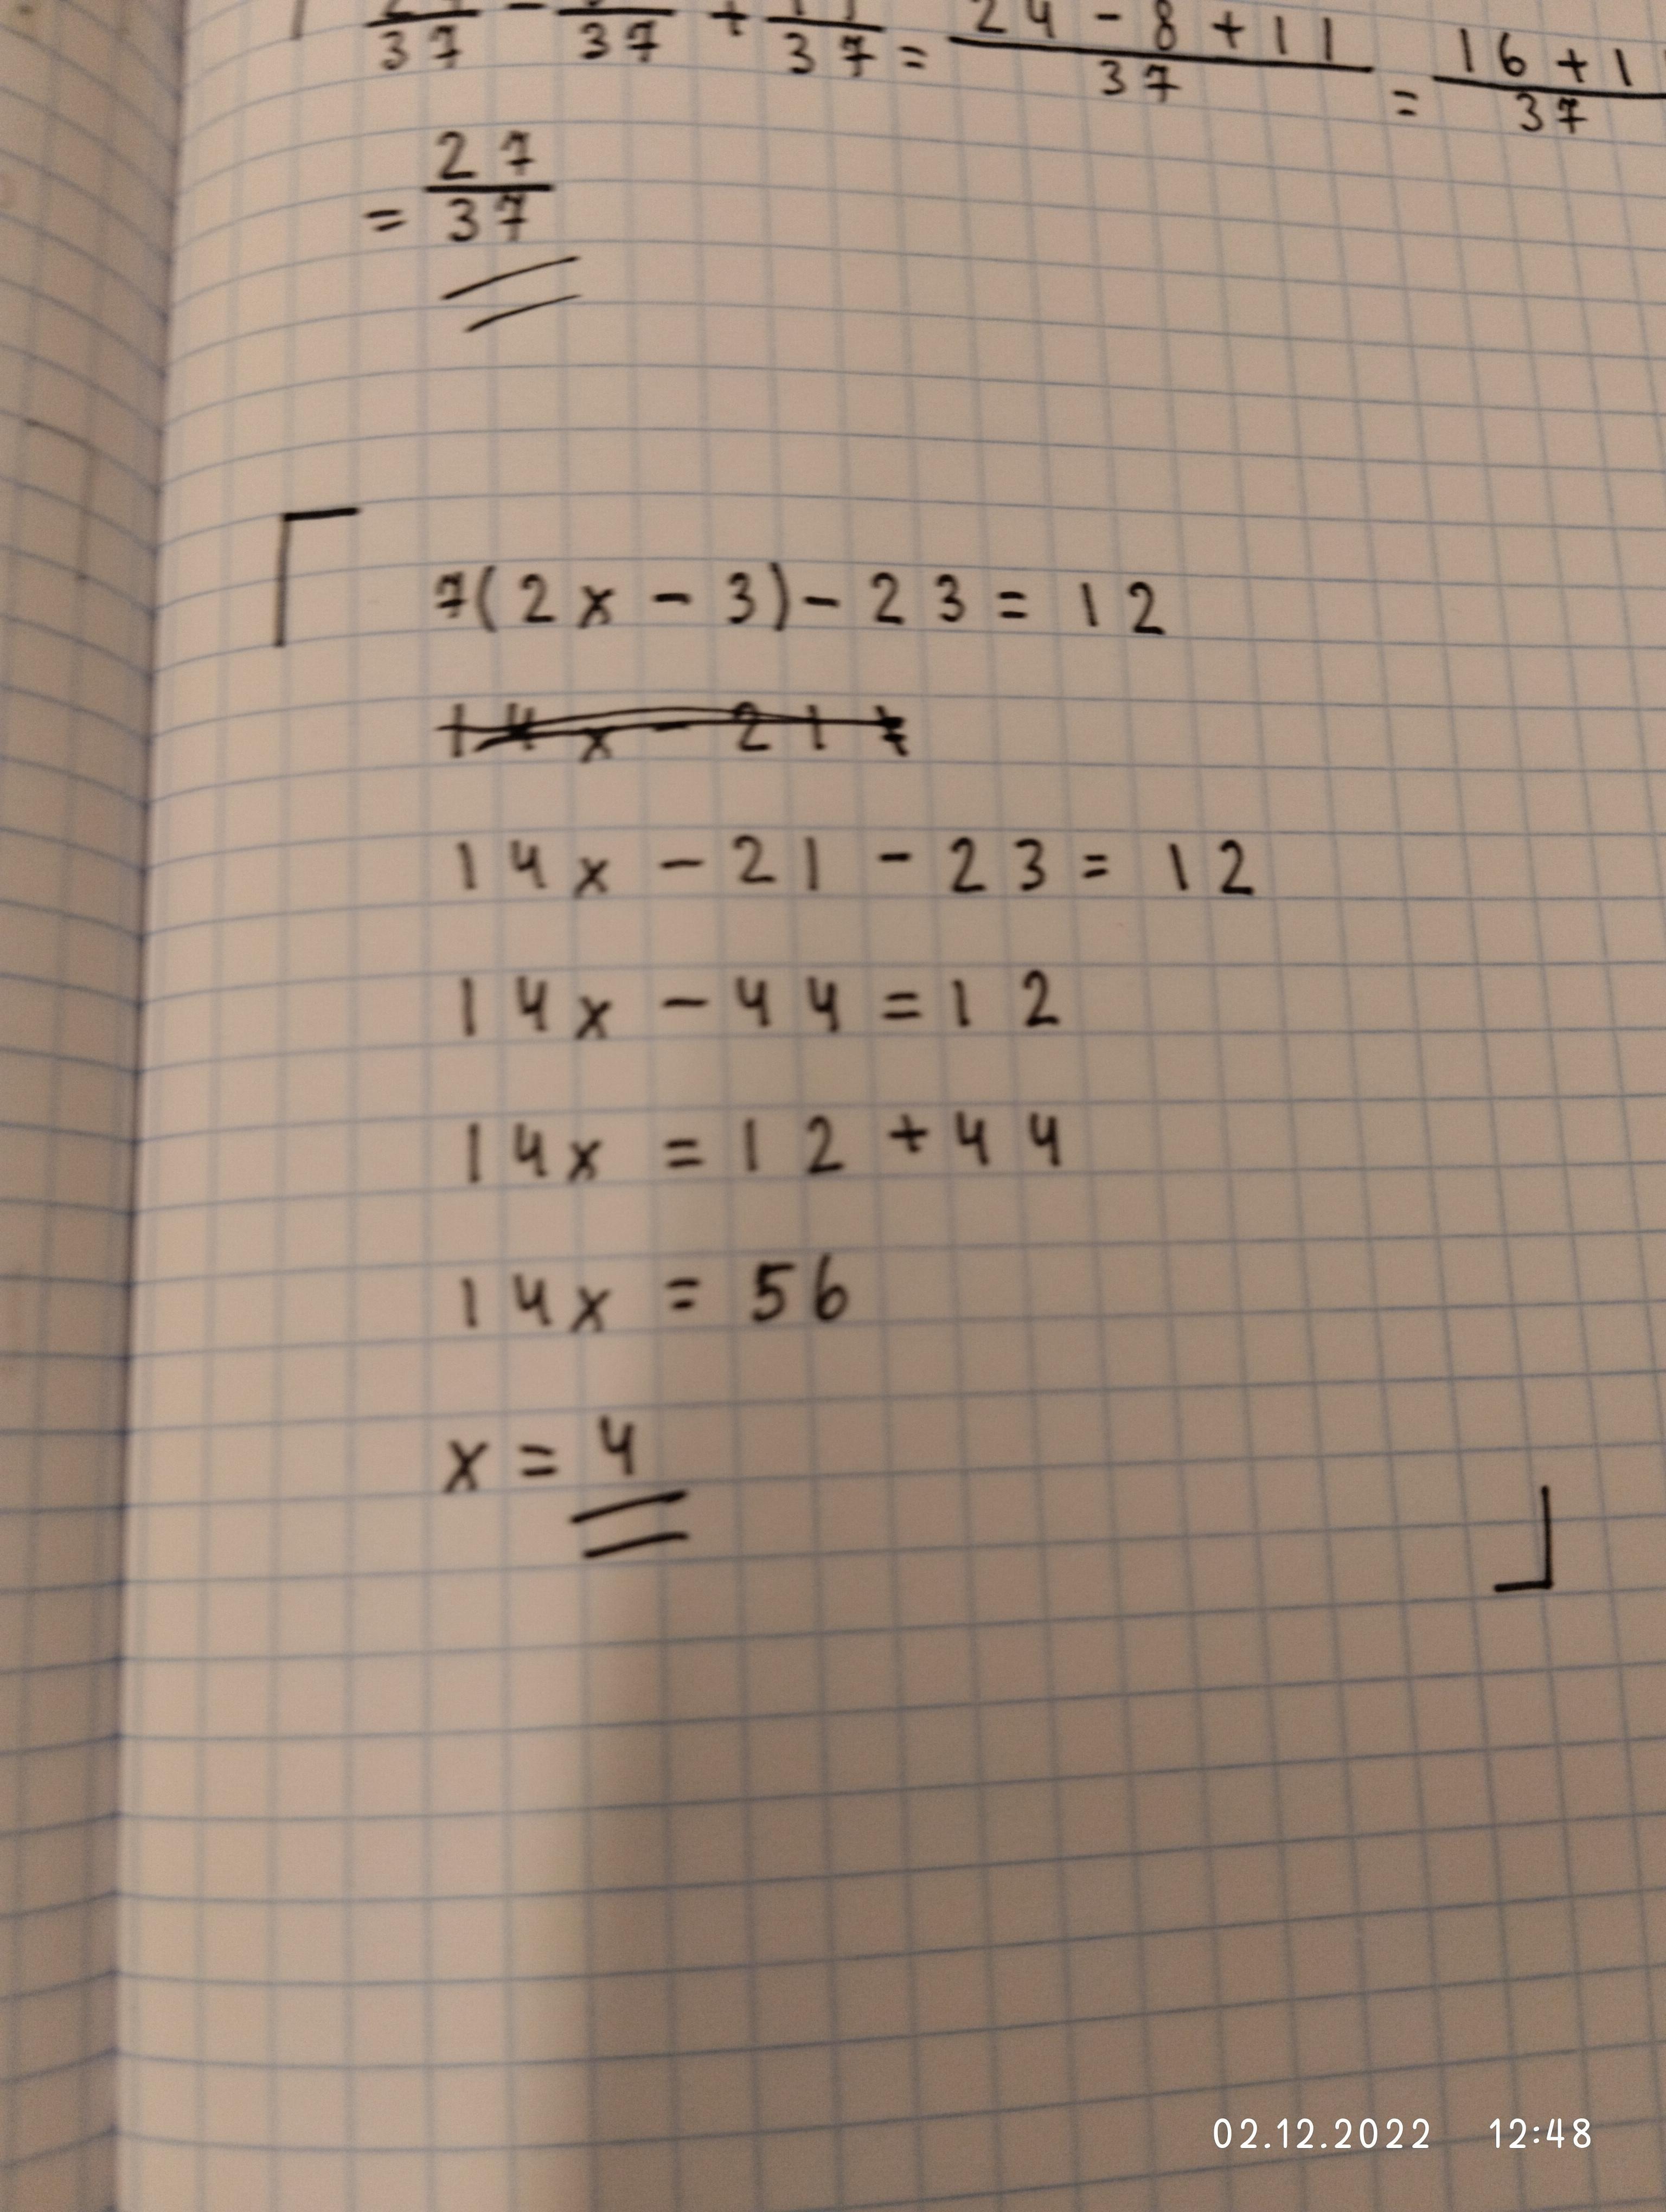 24/37 - 8/37 + 11/37 = (24 - 8 + 11)/37 = (16 + 11)/37
= 27/37
7(2x - 3) - 23 = 12
14x - 21
14x - 21 - 23 = 12
14x - 44 = 12
14x = 12 + 44
14x = 56
x = 4
02.12.2022 12:48